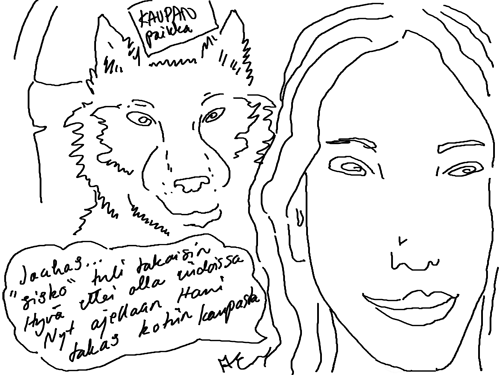 KAUPAN
paikka
Jaahas...
"sisko" tuli takaisin
Hyvä ettei olla uudoissa
Nyt ajellaan Hani
takas kotiin kaupasta